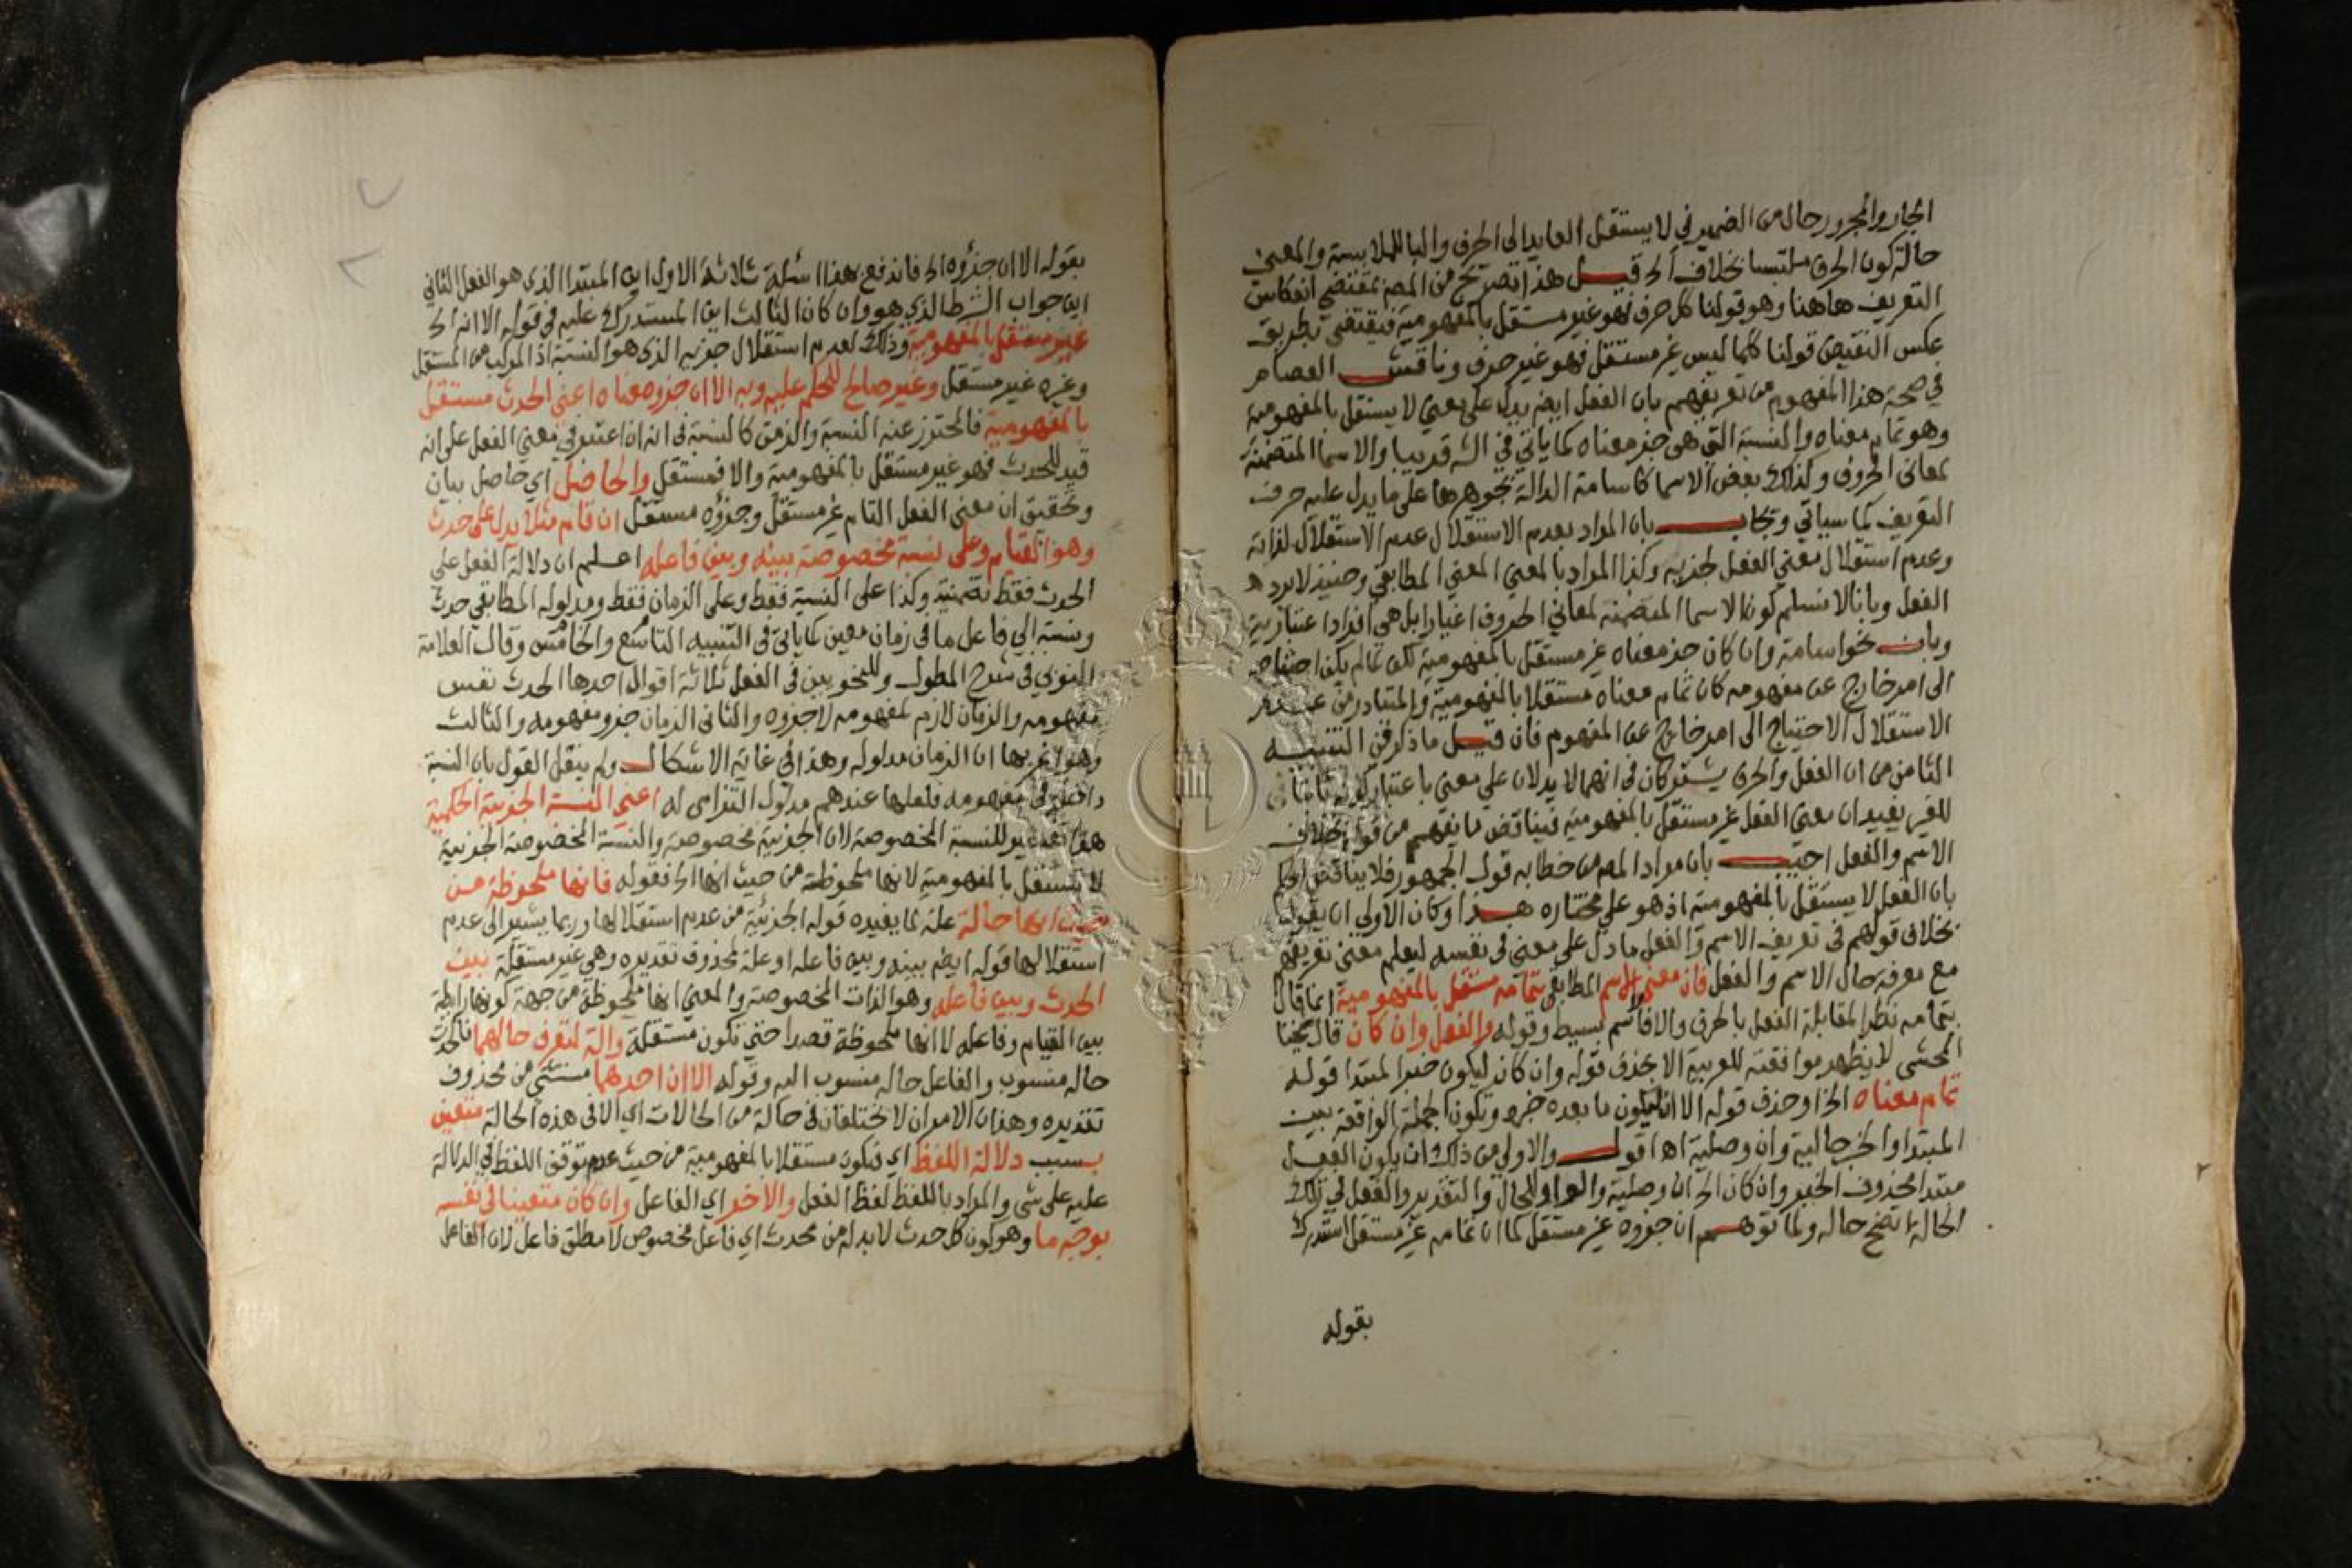 الجار والمجرور حال من الضمير في لا يستقل العايد الى الحرف والبا للملابسة والمعنى
حالة كون الحرف ملتبسا بخلاف الخ قيل هذا تصريح من المص بمقتضى انعكاس
التعريف هاهنا وهو قولنا كل حرف فهو غير مستقل بالمفهومية فيقتضى بطريق
عكس النقيض قولنا كلما ليس غير مستقل فهو غير حرف وناقش العصام
في صحة هذا المفهوم من تعريفهم بان الفعل ايض يدل على معنى لا يستقل بالمفهومية
وهو تمام معناه والنسبة التي هي جز معناه كما ياتي في الش قريبا والاسما المتضمنة
لمعاني الحروف وكذلك بعض الاسما كاسامة الدالة بجوهرها على ما يدل عليه حرف
التعريف كما سياتي ويجاب بان المراد بعدم الاستقلال عدم الاستقلال لذاته
وعدم استقلال معنى الفعل لجزيه وكذا المراد بالمعنى المعنى المطابقي وحينيذ لا يرد
الفعل وبانا لا نسلم كون الاسما المتضمنة لمعاني الحروف اغيارا بل هي افرادا عتبارية
وبان نحو اسامة وان كان جز معناه غير مستقل بالمفهومية لكن لما لم يكن احتياجه
الى امر خارج عن مفهومه كان تمام معناه مستقلا بالمفهومية والمتبادر من عدم
الاستقلال الاحتياج الى امر خارج عن المفهوم فان قيل ما ذكر في التنبيه
الثامن من ان الفعل والحرف يشتركان في انهما لا يدلان على معنى باعتبار كونه ثابتا
للغير يفيد ان معنى الفعل غير مستقل بالمفهومية فيناقض ما يفهم من قوله بخلاف
الاسم والفعل اجيب بان مراد المص من خطابه قول الجمهور فلا يناقض الحكم
بان الفعل لا يستقل بالمفهومية اذ هو على مختاره هذا وكان الاولى ان يقول
بخلاف قولهم في تعريف الاسم والفعل ما دل على معنى في نفسه ليعلم معنى تعريفهم
مع معرفة حال الاسم والفعل فان معنى الاسم المطابقي بتمامه مستقل بالمفهومية انما قال
بتمامه نظرا لمقابلة الفعل بالحرف والا فاسم بسيط وقوله والفعل وان كان قال شيخنا
المحشى لا يظهر موافقته للعربية الا بحذف قوله وان كان ليكون خبرا لمبتدا قوله
تمام معناه الخ او حذف قوله الا ان ليكون ما بعده خبره وتكون الجملة الواقعة بين
المبتدا والخبر حالية وان وصلية اه اقول والاولى من ذلك ان يكون الفعل
مبتدا محذوف الخبر وان كان الخ ان وصلية والواو للحال والتقدير والفعل في تلك
الحالة اتضح حاله ولما توهم ان جزوه غير مستقل كما ان تمامه غير مستقل استدرك
بقوله
بقوله الا ان جزؤه الخ فاندفع بهذا اسئلة ثلاثة الاول اين المبتدا الذي هو الفعل الثاني
اين جواب الشرط الذي هو وان كان الثالث اين المستدرك عليه في قوله الا انه الخ
غير مستقل بالمفهومية وذلك لعدم استقلال جزيه الذي هو النسبة اذ المركب من المستقل
وغيره غير مستقل وغير صالح للحكم عليه وبه الا ان جزو معناه اعني الحدث مستقل
بالمفهومية فالمحترز عنه النسبة والزمن كالنسبة في انه ان اعتبر في معنى الفعل على انه
قيد للحدث فهو غير مستقل بالمفهومية والا فمستقل والحاصل اي حاصل بيان
وتحقيق ان معنى الفعل التام غير مستقل وجزؤه مستقل ان قام مثلا يدل على حدث
وهو القيام وعلى نسبة مخصوصة بينه وبين فاعله اعلم ان دلالة الفعل على
الحدث فقط تضمنية وكذا على النسبة فقط وعلى الزمان فقط ومدلوله المطابقي حدث
ونسبة الى فاعل ما في زمان معين كما ياتى فى التنبيه التاسع والخامس وقال العلامة
الفنري في شرح المطول وللنحويين في الفعل ثلاثة اقوال احدها الحدث نفس
مفهومه والزمان لازم لمفهومه لا جزوه والثانى الزمان جزو مفهومه والثالث
وهو اغربها ان الزمان مدلوله وهذا في غاية الاشكال ولم ينقل القول بان النسبة
داخلة في مفهومه فلعلها عندهم مدلول التزامى له اعني النسبة الجزئية الحكمية
هذا تفسير للنسبة المخصوصة لان الجزئية مخصوصة والنسبة المخصوصة الجزئية
لا تستقل بالمفهومية لانها ملحوظة من حيث انها الخ فقوله فانها ملحوظة من
حيث انها حالة علة لما يفيده قوله الجزئية من عدم استقلالها وربما يشير الى عدم
استقلالها قوله ايض بينه وبين فاعله او علة لمحذوف تقديره وهي غير مستقلة بين
الحدث وبين فاعله وهو الذات المخصوصة والمعنى انها ملحوظة من جهة كونها رابطة
بين القيام وفاعله لا انها ملحوظة قصدا حتى تكون مستقلة والة لتعرف حالهما فالحدث
حاله منسوب والفاعل حاله منسوب اليه وقوله الا ان احدهما مستثنى من محذوف
تقديره وهذان الامران لا يختلفان في حالة من الحالات اي الا في هذه الحالة متعين
بسبب دلالة اللفظ اي فيكون مستقلا بالمفهومية من حيث عدم توقف اللفظ في الدلالة
عليه على شي والمراد باللفظ لفظ الفعل والاخر اي الفاعل وان كان متعينا في نفسه
بوجه ما وهو كون كل حدث لابد له من محدث اي فاعل مخصوص لا مطلق فاعل لان الفاعل